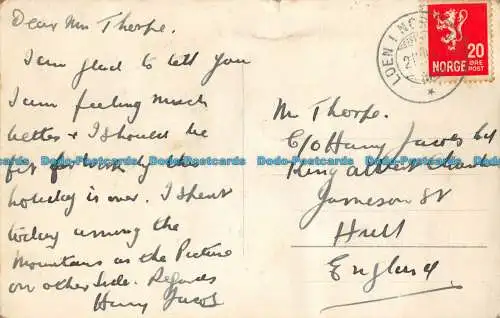 Dear Mr Thorpe.
I am glad to tell you
I am feeling much
better & I should be
fit for work by the
holiday is over. I spent
today among the
Mountains as the Picture
on other Side. Regards
Harry Jacobs
LOEN I NOR
20
NORGE ØRE
POST
Mr Thorpe.
C/O Harry Jacobs Ltd
King Albert Chambers
Jameson St
Hull
England.
Dodo-Postcards Dodo-Postcards Dodo-Postcards Dodo-Postcards